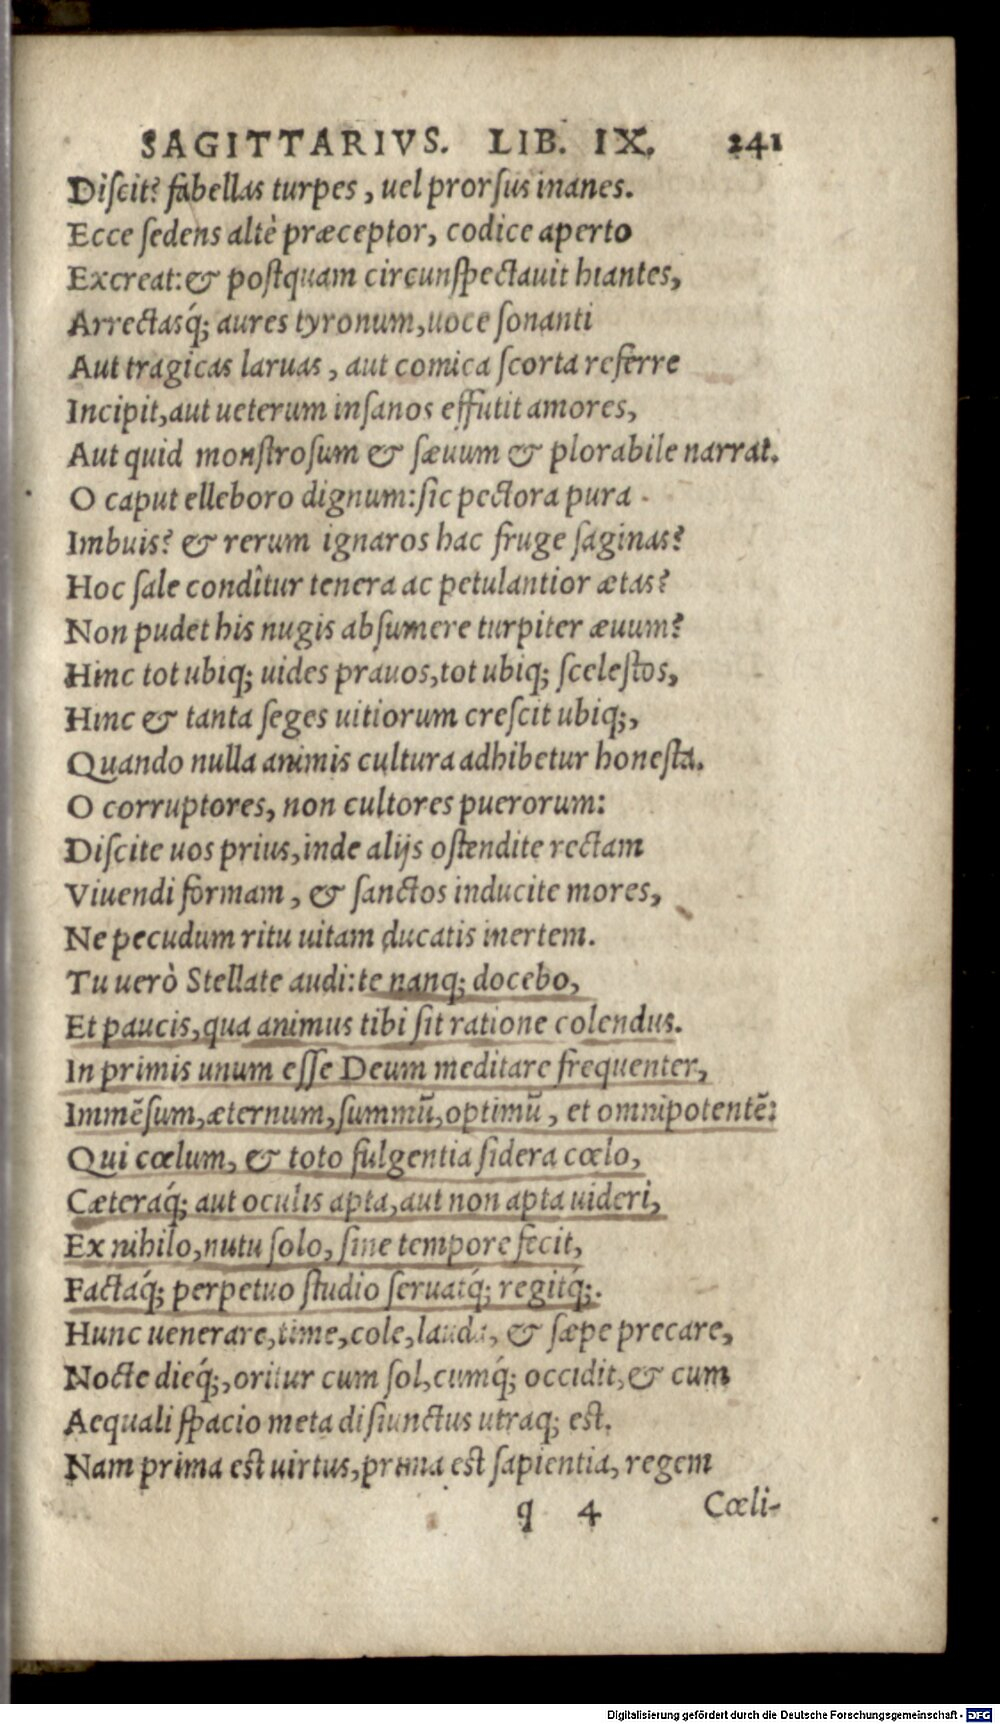 SAGITTARIVS. LIB. IX. 241
Diſcit? fabellas turpes, uel prorſus inanes.
Ecce ſedens altè præceptor, codice aperto
Excreat: & poſtquam circunſpectauit hiantes,
Arrectasq́; aures tyronum, uoce ſonanti
Aut tragicas laruas, aut comica ſcorta referre
Incipit, aut ueterum inſanos effutit amores,
Aut quid monſtroſum & ſæuum & plorabile narrat.
O caput elleboro dignum: ſic pectora pura
Imbuis? & rerum ignaros hac fruge ſaginas?
Hoc ſale condîtur tenera ac petulantior ætas?
Non pudet his nugis abſumere turpiter æuum?
Hinc tot ubiq; uides prauos, tot ubiq; ſceleſtos,
Hinc & tanta ſeges uitiorum creſcit ubiq;,
Quando nulla animis cultura adhibetur honeſta.
O corruptores, non cultores puerorum:
Diſcite uos prius, inde alijs oſtendite rectam
Viuendi formam, & ſanctos inducite mores,
Ne pecudum ritu uitam ducatis inertem.
Tu uerò Stellate audi: te nanq; docebo,
Et paucis, qua animus tibi ſit ratione colendus.
In primis unum eſſe Deum meditare frequenter,
Immẽſum, æternum, ſummũ, optimũ, et omnipotentẽ:
Qui cœlum, & toto fulgentia ſidera cœlo,
Cæteraq́; aut oculis apta, aut non apta uideri,
Ex nihilo, nutu ſolo, ſine tempore fecit,
Factaq́; perpetuo ſtudio ſeruatq́; regitq́;.
Hunc uenerare, time, cole, lauda, & ſæpe precare,
Nocte dieq́;, oritur cum ſol, cumq́; occidit, & cum
Aequali ſpacio meta diſiunctus utraq; eſt.
Nam prima eſt uirtus, prima eſt ſapientia, regem
q 4 Cœli-
Digitalisierung gefördert durch die Deutsche Forschungsgemeinschaft - DFG